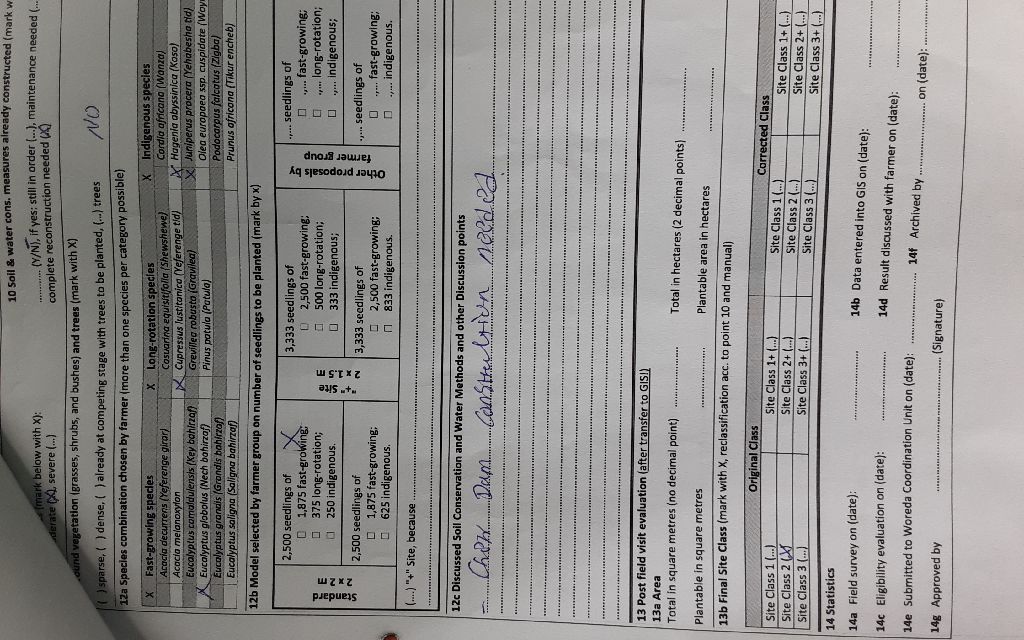 10 Soil & water cons. measures already constructed (mark w
(Y/N), if yes: still in order (...), maintenance needed (...
complete reconstruction needed (X)
(mark below with X):
(X), severe (...)
ound vegetation (grasses, shrubs, and bushes) and trees (mark with X)
( ) sparse, ( ) dense, ( ) already at competing stage with trees to be planted, (...) trees NO
12a Species combination chosen by farmer (more than one species per category possible)
X Fast-growing species X Long-rotation species X Indigenous species
Acacia decurrens (Yeferenge girar) Casuarina equisitifolia (Shewshewe) Cordia africana (Wanza)
Acacia melanoxylon X Cupressus lusitanica (Yeferenge tid) X Hagenia abyssinica (Koso)
Eucalyptus camaldulensis (Key bahirzaf) Grevillea robusta (Gravilea) X Juniperus procera (Yehabesha tid)
X Eucalyptus globolus (Nech bahirzaf) Pinus patula (Patula) Olea europaea ssp. cuspidate (Woy
Eucalyptus grandis (Grandis bahirzaf) Podocarpus falcatus (Zigba)
Eucalyptus saligna (Saligna bahirzaf) Prunus africana (Tikur encheb)
12b Model selected by farmer group on number of seedlings to be planted (mark by x)
Standard
2 x 2 m
2,500 seedlings of X
☐ 1,875 fast-growing;
☐ 375 long-rotation;
☐ 250 indigenous.
2,500 seedlings of
☐ 1,875 fast-growing;
☐ 625 indigenous.
"+" Site
2 x 1.5 m
3,333 seedlings of
☐ 2,500 fast-growing;
☐ 500 long-rotation;
☐ 333 indigenous;
3,333 seedlings of
☐ 2,500 fast-growing;
☐ 833 indigenous.
Other proposals by
farmer group
.,... seedlings of
☐ .,... fast-growing;
☐ .,... long-rotation;
☐ .,... indigenous;
.,... seedlings of
☐ .,... fast-growing;
☐ .,... indigenous.
(....) "+" Site, because
12c Discussed Soil Conservation and Water Methods and other Discussion points
- Check Dam construction needed
13 Post field visit evaluation (after transfer to GIS!)
13a Area
Total in square metres (no decimal point) .......... Total in hectares (2 decimal points) ..........
Plantable in square metres .......... Plantable area in hectares ..........
13b Final Site Class (mark with X, reclassification acc. to point 10 and manual)
Original Class Corrected Class
Site Class 1 (...) Site Class 1+ (...) Site Class 1 (...) Site Class 1+ (...)
Site Class 2 (X) Site Class 2+ (...) Site Class 2 (...) Site Class 2+ (...)
Site Class 3 (...) Site Class 3+ (...) Site Class 3 (...) Site Class 3+ (...)
14 Statistics
14a Field survey on (date): .......... 14b Data entered into GIS on (date): ..........
14c Eligibility evaluation on (date): .......... 14d Result discussed with farmer on (date): ..........
14e Submitted to Woreda Coordination Unit on (date): .......... 14f Archived by .......... on (date): ..........
14g Approved by .......... (Signature)